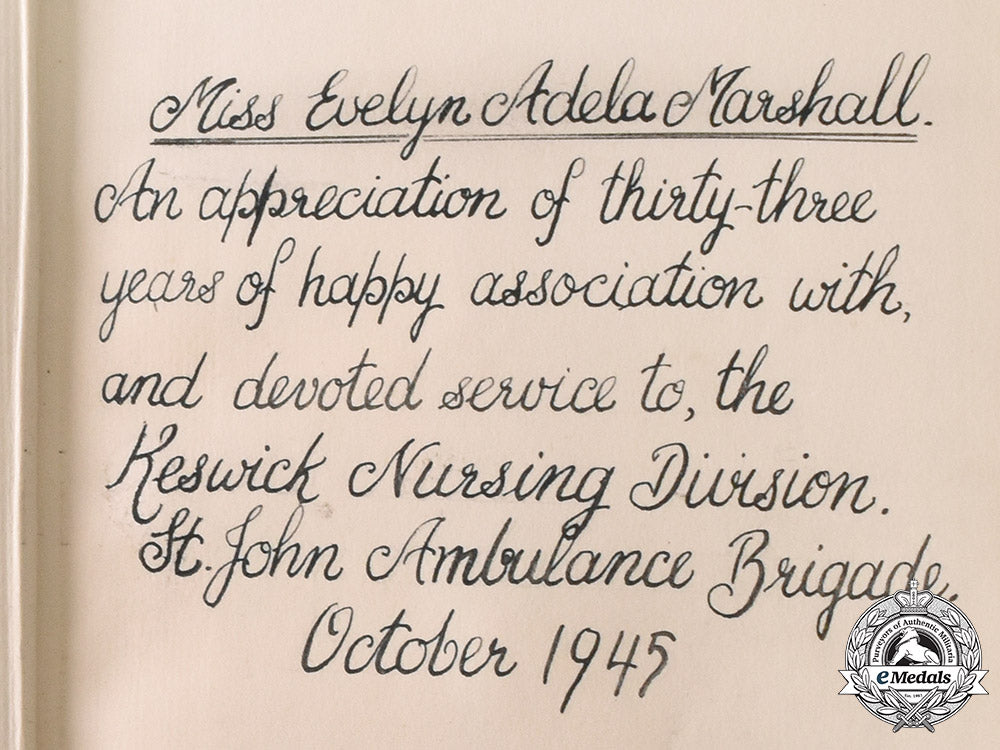 Miss Evelyn Adela Marshall.
An appreciation of thirty-three
years of happy association with,
and devoted service to, the
Keswick Nursing Division.
St. John Ambulance Brigade.
October 1945
Purveyors of Authentic Militaria
eMedals